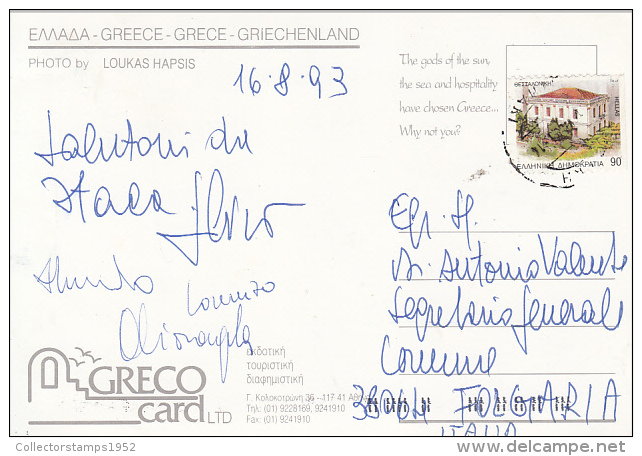 ΕΛΛΑΔΑ - GREECE - GRECE - GRIECHENLAND
PHOTO by LOUKAS HAPSIS
16.8.93
The gods of the sun,
the sea and hospitality
have chosen Greece...
Why not you?
ΘΕΣΣΑΛΟΝΙΚΗ
HELLAS
ΕΛΛΗΝΙΚΗ ΔΗΜΟΚΡΑΤΙΑ 90
Salutoni da
Itaca
Lorenzo
Egr. 
Antonio Valente
Segretario Generale
Comune
38064 FOLGARIA
ITALIA
GRECO
card LTD
εκδοτική
τουριστική
διαφημιστική
Γ. Κολοκοτρώνη 36 - 117 41 Αθή
Τηλ: (01) 9228169, 9241910
Fax: (01) 9241910
Collectorstamps1952